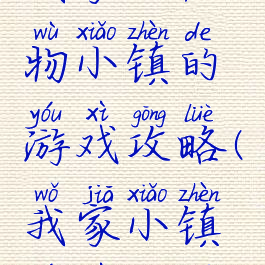 wù xiǎo zhèn de
物小镇的
yóu xì gōng lüè
游戏攻略(
wǒ jiā xiǎo zhèn
我家小镇